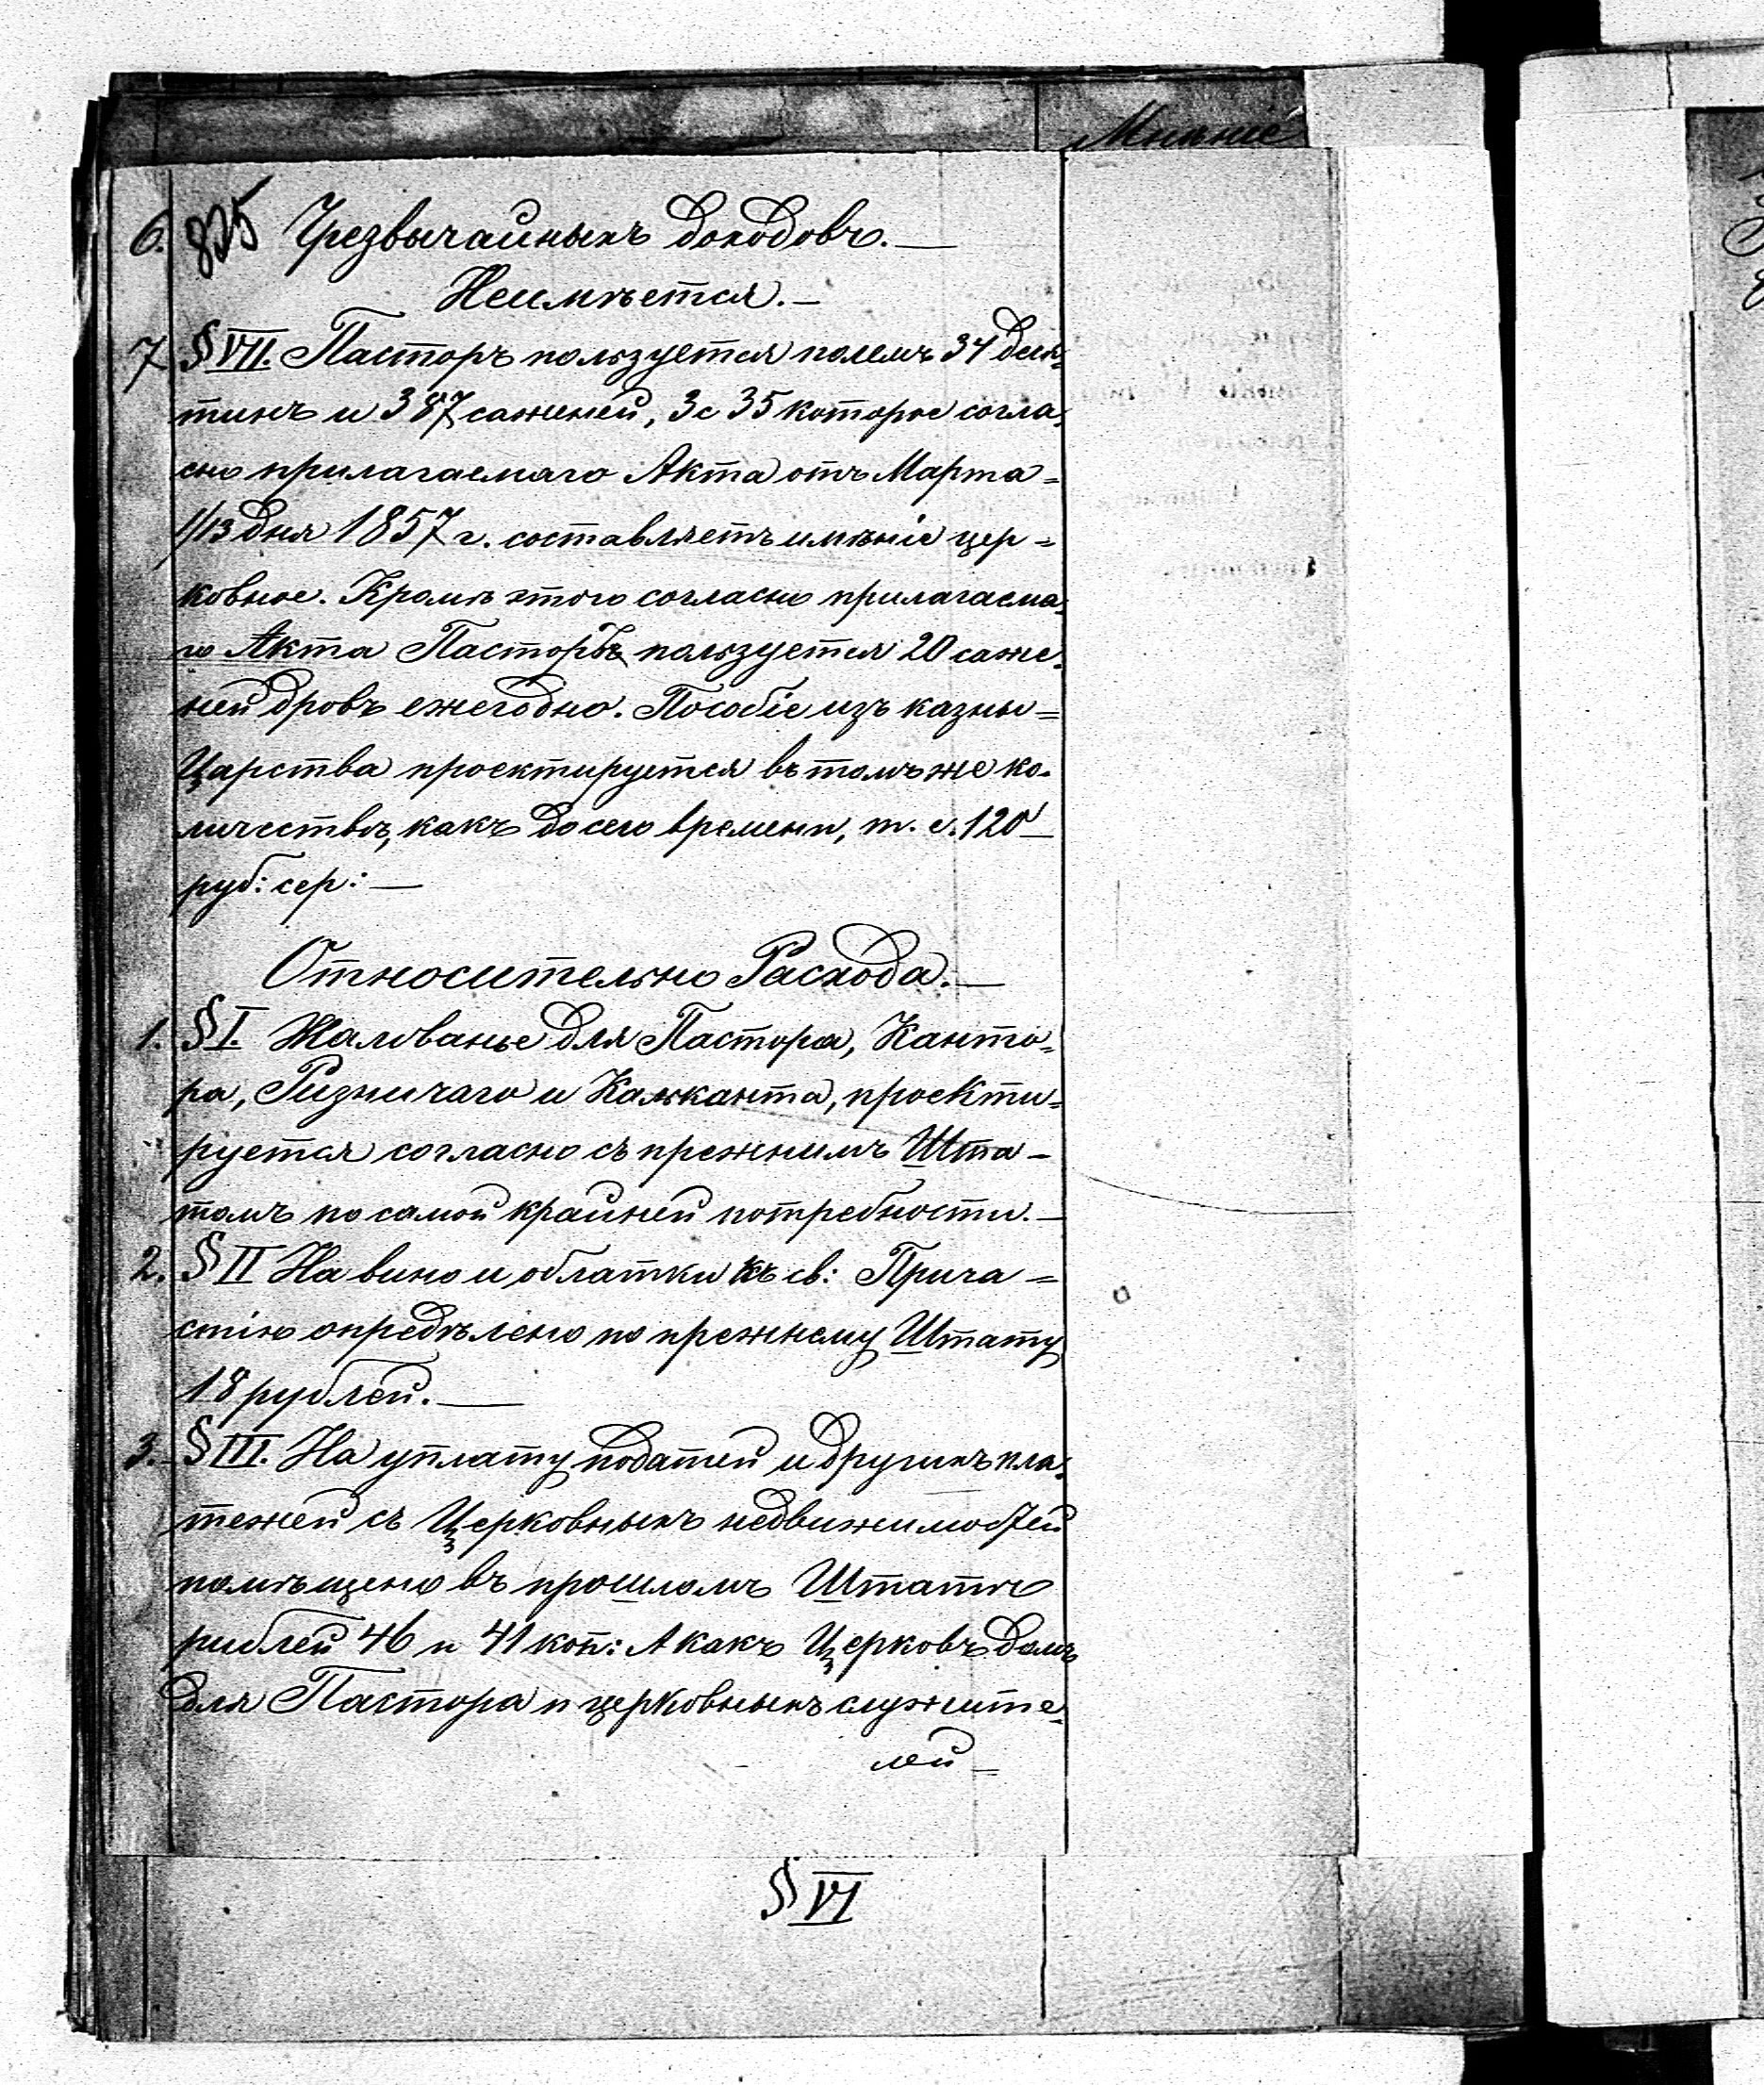 Мнѣніе
6. 825 Чрезвычайныхъ доходовъ.—
Неимѣется.—
7. § VII. Пасторъ пользуется полемъ 34 деся-
тинъ и 387 саженей, 3с 35 которое согла-
сно прилагаемаго Акта отъ Марта =
1/13 дня 1857 г. составляетъ имѣніе цер =
ковное. Кромѣ этого согласно прилагаема-
го Акта Пасторъ пользуется 20 саже-
ней дровъ ежегодно. Пособіе изъ казны =
Царства проектируется въ томъ же ко-
личествѣ, какъ до сего времени, т. е. 120 —
руб: сер: —
Относительно Расхода.—
1. § I. Жалованье для Пастора, Канто-
ра, Ризничаго и Калкканта, проекти-
руется согласно съ прежнимъ Шта -
томъ по самой крайней потребности.—
2. § II На вино и облатки къ св: Прича =
стію опредѣлено по прежнему Штату
18 рублей.—
3. § III. На уплату податей и другихъ пла-
тежей съ Церковныхъ недвижимостей
помѣщено въ прошломъ Штатѣ
рублей 46 и 41 коп: А какъ Церковь домъ
для Пастора и церковныхъ служите-
лей —
§ VI